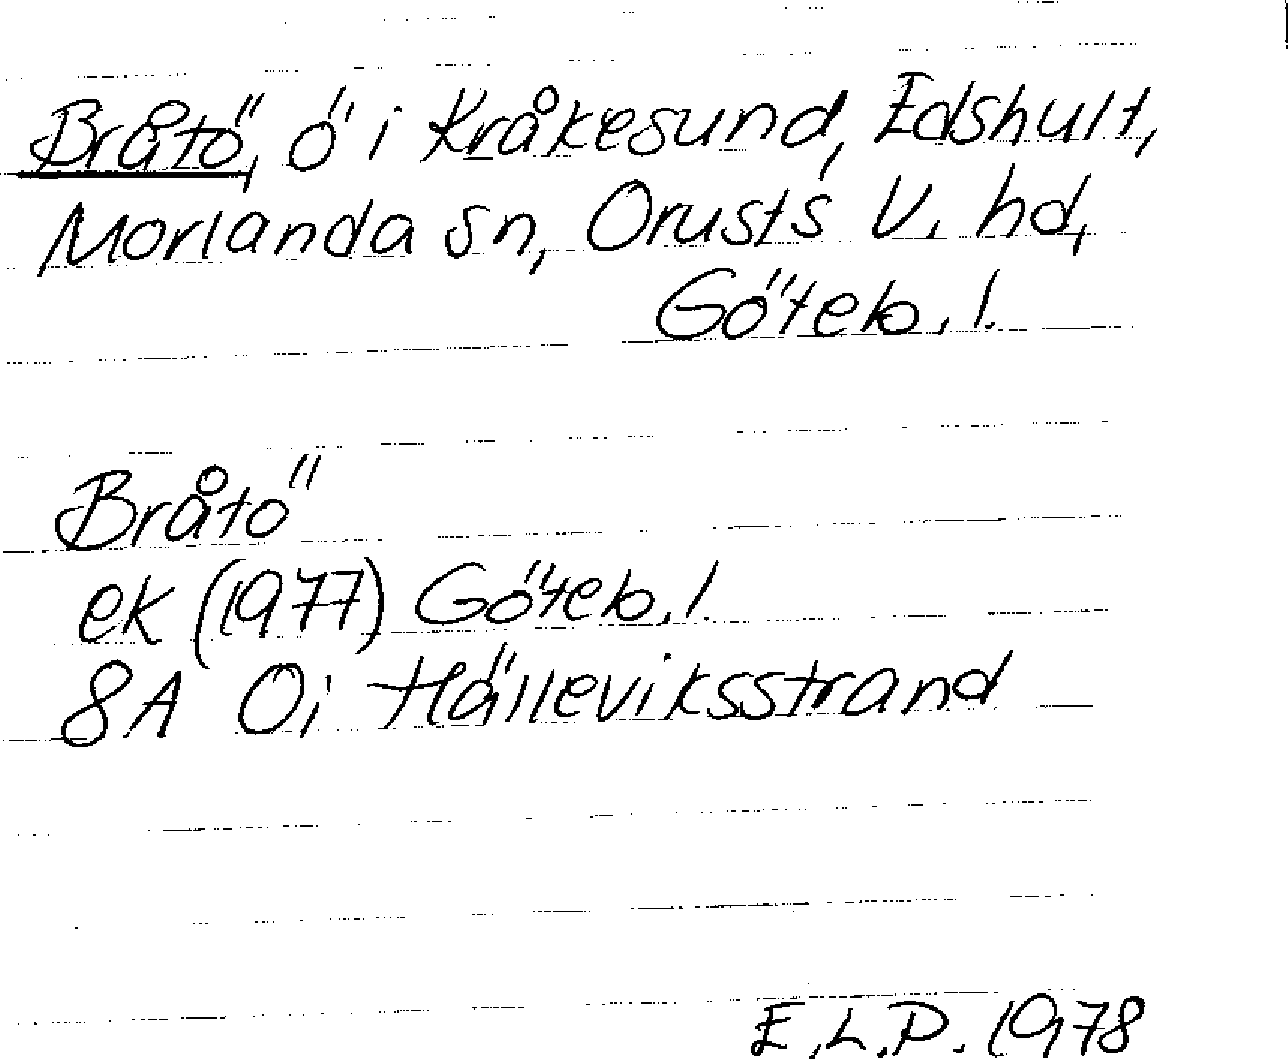 Bråtö, ö i Kråkesund, Edshult,
Morlanda sn, Orusts V. hd,
Göteb. l.
Bråtö
ek (1977) Göteb. l.
8A 0i Hälleviksstrand
E.L.P. 1978